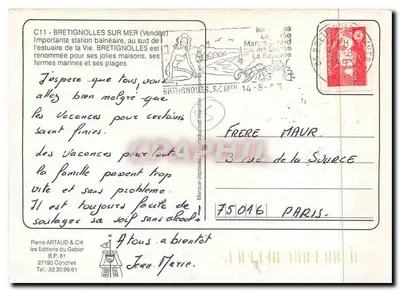 C11 - BRETIGNOLLES SUR MER (Vendée)
Importante station balnéaire, au sud de
l'estuaire de la Vie. BRETIGNOLLES est
renommée pour ses jolies maisons, ses
fermes marines et ses plages.
J'espère que tous, vous
allez bien malgré que
les vacances pour certains
soient finies.
Les vacances pour toute
la famille passent trop
vite et sans problème.
Il est toujours facile de
soulager sa soif sans alcool
A tous à bientôt
Jean-Marie.
Pierre ARTAUD & Cie
les Editions du Gabier
B.P. 61
27190 Conches
Tel.: 32.30.99.61
BRETIGNOLLES S/MER 14-8-
FRERE MAUR.
3 rue de la SOURCE
75016 PARIS.